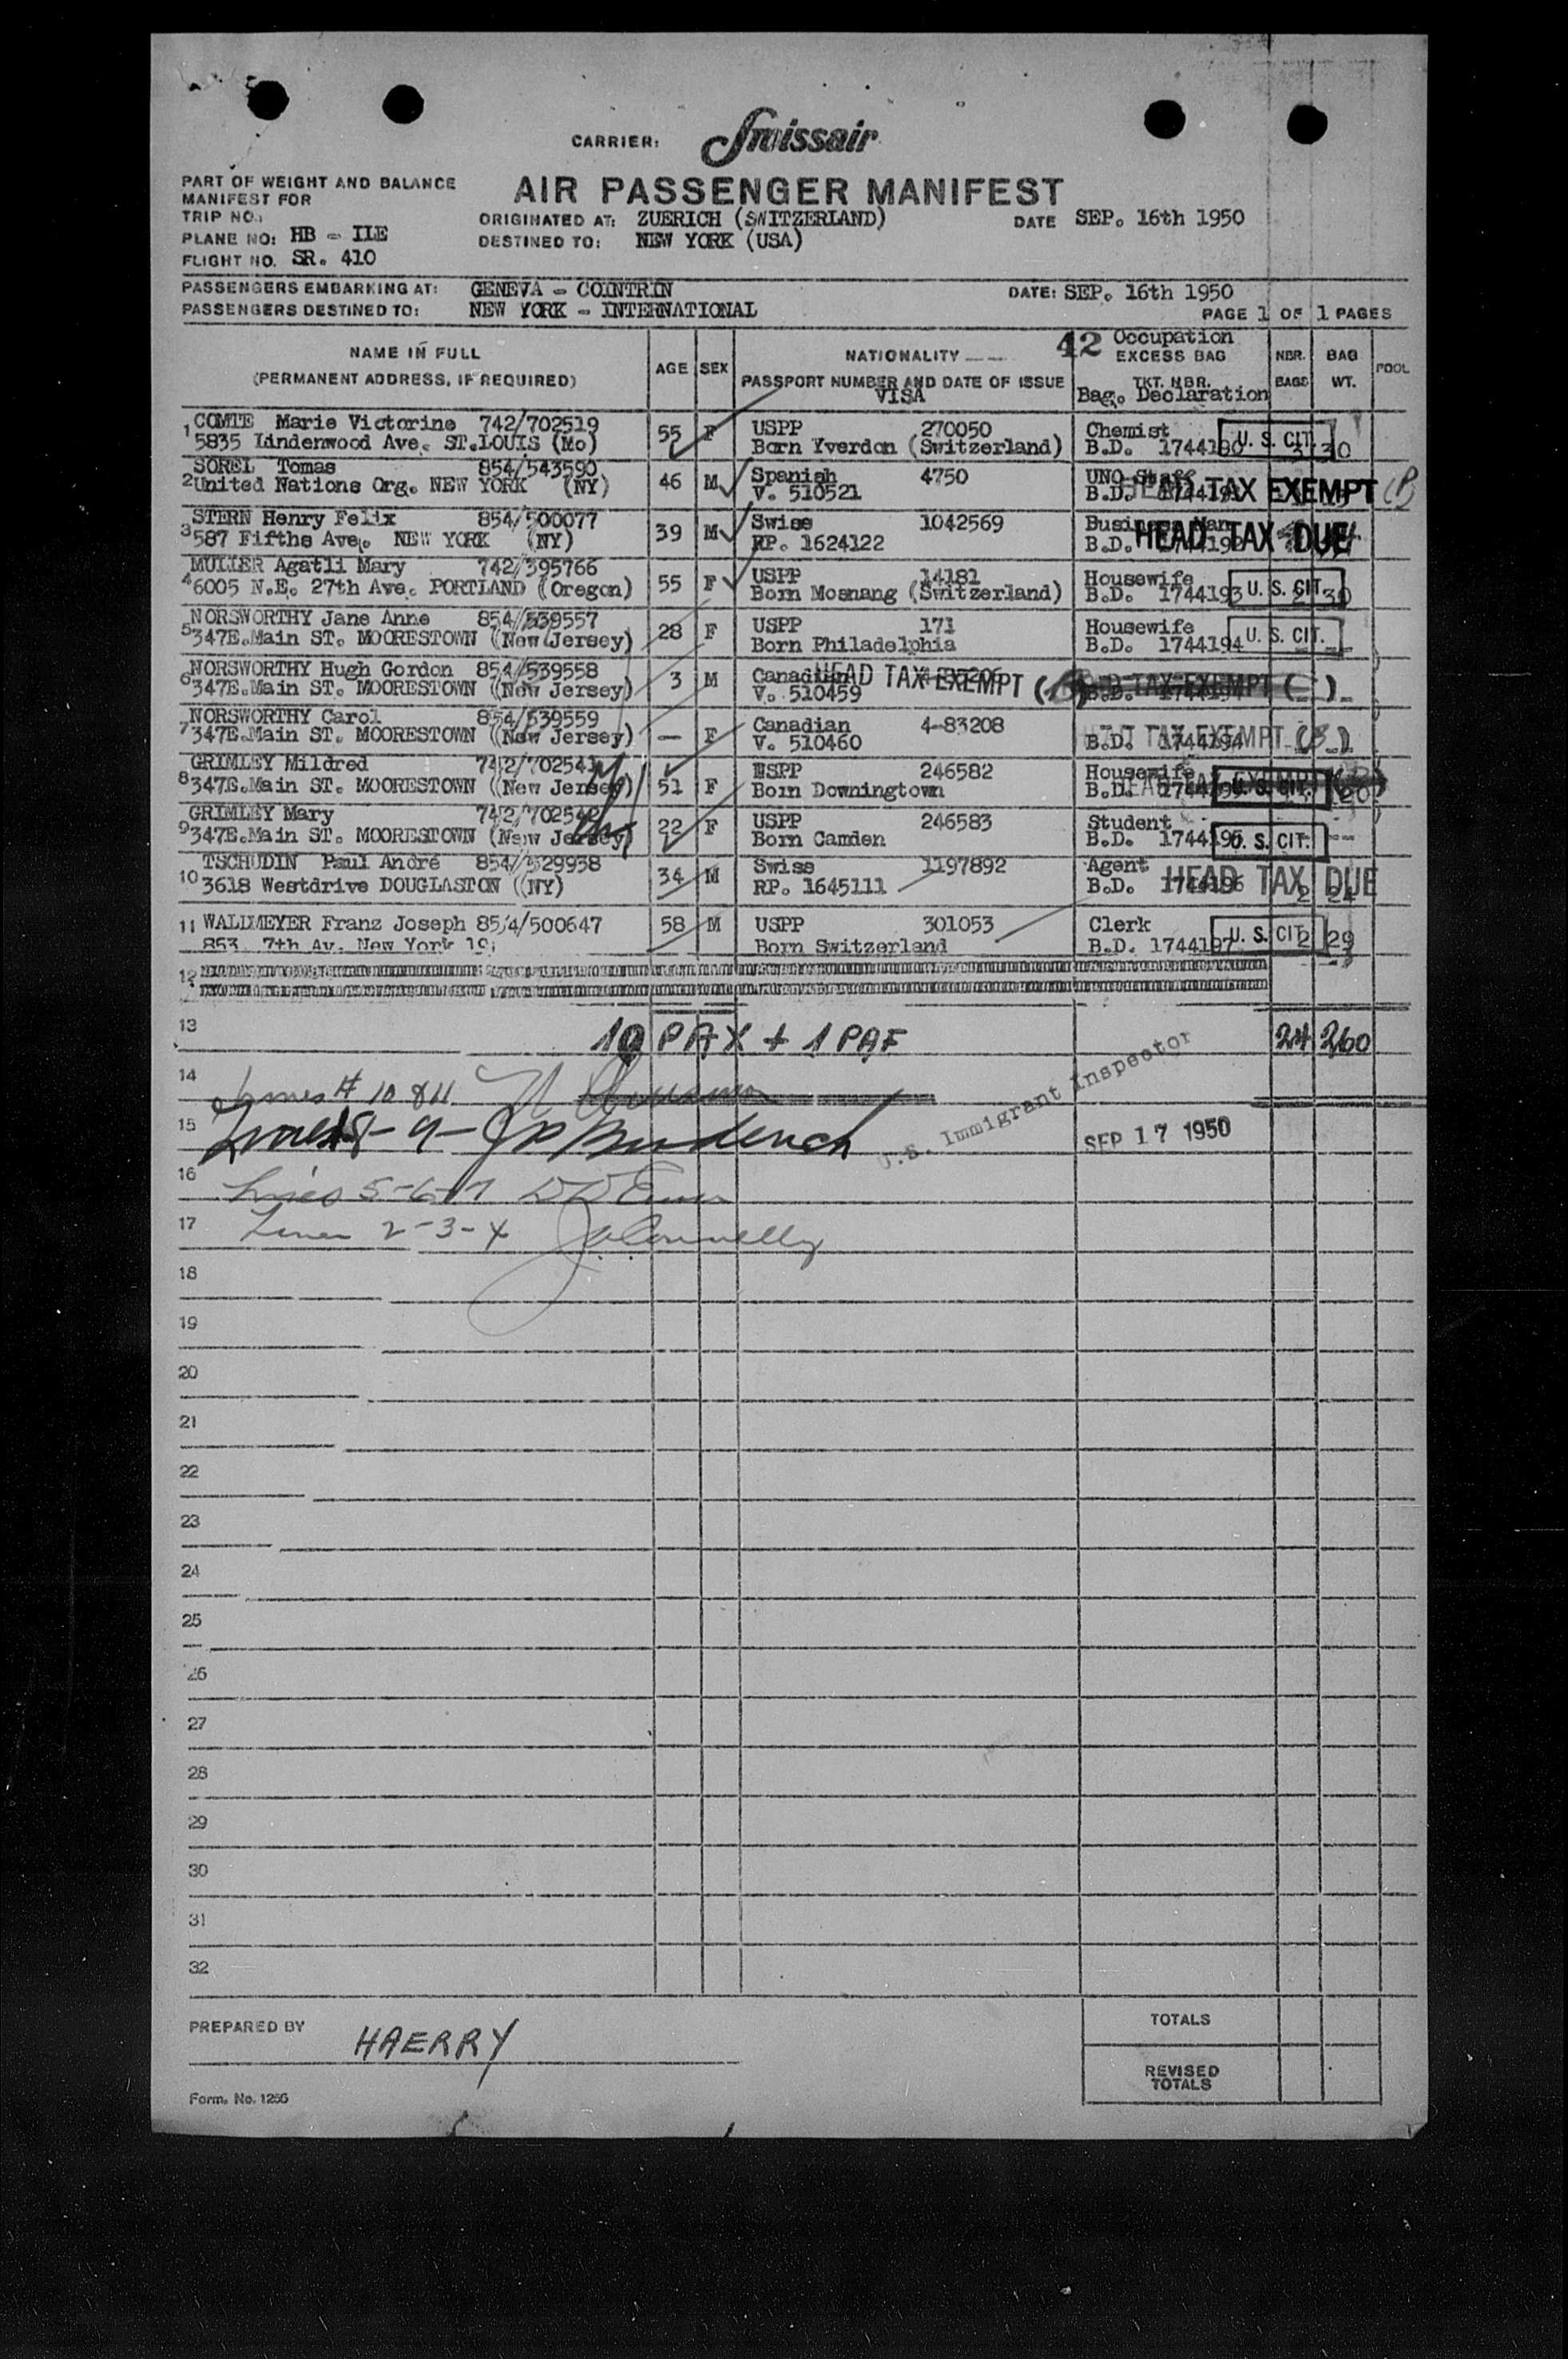 CARRIER: Swissair
PART OF WEIGHT AND BALANCE
MANIFEST FOR
AIR PASSENGER MANIFEST
TRIP NO.:
ORIGINATED AT: ZUERICH (SWITZERLAND) DATE SEP. 16th 1950
PLANE NO: HB - ILE
DESTINED TO: NEW YORK (USA)
FLIGHT NO. SR. 410
PASSENGERS EMBARKING AT: GENEVA - COINTRIN DATE: SEP. 16th 1950
PASSENGERS DESTINED TO: NEW YORK - INTERNATIONAL
PAGE 1 OF 1 PAGES
NAME IN FULL AGE SEX NATIONALITY 42 Occupation EXCESS BAG NBR. BAG POOL
(PERMANENT ADDRESS, IF REQUIRED) PASSPORT NUMBER AND DATE OF ISSUE TKT. NBR. BAGS WT.
VISA Bag. Declaration
1 COMTE Marie Victorine 742/702519 55 F USPP 270050 Chemist U. S. CIT.
5835 Lindenwood Ave. ST.LOUIS (Mo) Born Yverdon (Switzerland) B.D. 1744190 3 30
2 SOREL Tomas 854/543590 46 M Spanish 4750 UNO Staff
United Nations Org. NEW YORK (NY) V. 510521 B.D. HEAD TAX EXEMPT (B)
3 STERN Henry Felix 854/500077 39 M Swiss 1042569 Business Man
587 Fifths Ave. NEW YORK (NY) RP. 1624122 B.D. HEAD TAX DUE
4 MULLER Agatli Mary 742/395766 55 F USPP 14181 Housewife U. S. CIT.
6005 N.E. 27th Ave. PORTLAND (Oregon) Born Mosnang (Switzerland) B.D. 1744193 30
5 NORSWORTHY Jane Anne 854/539557 28 F USPP 171 Housewife U. S. CIT.
347E.Main ST. MOORESTOWN (New Jersey) Born Philadelphia B.D. 1744194
6 NORSWORTHY Hugh Gordon 854/539558 3 M Canadian HEAD TAX EXEMPT
347E.Main ST. MOORESTOWN (New Jersey) V. 510459 B.D. 1744194 HEAD TAX EXEMPT
7 NORSWORTHY Carol 854/539559 — F Canadian 4-83208
347E.Main ST. MOORESTOWN (New Jersey) V. 510460 B.D. 1744194 HEAD TAX EXEMPT (B)
8 GRIMLEY Mildred 742/702541 51 F USPP 246582 Housewife
347E.Main ST. MOORESTOWN (New Jersey) Born Downingtown B.D. HEAD TAX EXEMPT U. S. CIT.
9 GRIMLEY Mary 742/702542 22 F USPP 246583 Student
347E.Main ST. MOORESTOWN (New Jersey) Born Camden B.D. 1744195 U. S. CIT.
10 TSCHUDIN Paul André 854/529938 34 M Swiss 1197892 Agent
3618 Westdrive DOUGLASTON (NY) RP. 1645111 B.D. 1744196 HEAD TAX DUE 2 24
11 WALLMEYER Franz Joseph 854/500647 58 M USPP 301053 Clerk
853 7th Av. New York 19, Born Switzerland B.D. 1744197 U. S. CIT. 2 29
12
13 10 PAX + 1 PAF 24 260
14 Lines # 10 & 11
15 Lines 8-9-
U.S. Immigrant Inspector
SEP 17 1950
16 Lines 5-6-7
17 Lines 2-3-4 J Connelly
18
19
20
21
22
23
24
25
26
27
28
29
30
31
32
PREPARED BY HAERRY
TOTALS
REVISED
TOTALS
Form. No. 1256